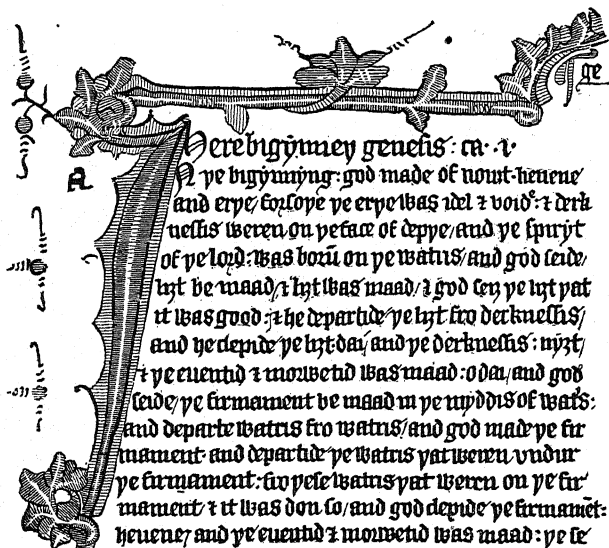 ge
Here bigynney genesis: ca. i.
N ye bigynnyng: god made of nouut. heuene
and erye, forsoye ye erye was idel ⁊ void: ⁊ derk
nessis weren on ye face of depye, and ye spiryt
of ye lord: was boru̅ on ye watris, and god seide,
liȝt be maad, ⁊ liȝt was maad, ⁊ god seiȝ ye liȝt yat
it was good: ⁊ he departide ye liȝt fro derknessis,
and he clepide ye liȝt. dai, and ye derknessis: nyȝt,
⁊ ye euentid ⁊ morwetid was maad: o dai, and god
seide, ye firmament be maad in ye myddis of watrˢ:
and departe watris fro watris, and god made ye fir
mament. and departide ye watris yat weren vndur
ye firmament: fro yese watris yat weren on ye fir
mament, ⁊ it was don so, and god clepide ye firmamēt:
heuene, and ye euentid ⁊ morwetid was maad: ye se